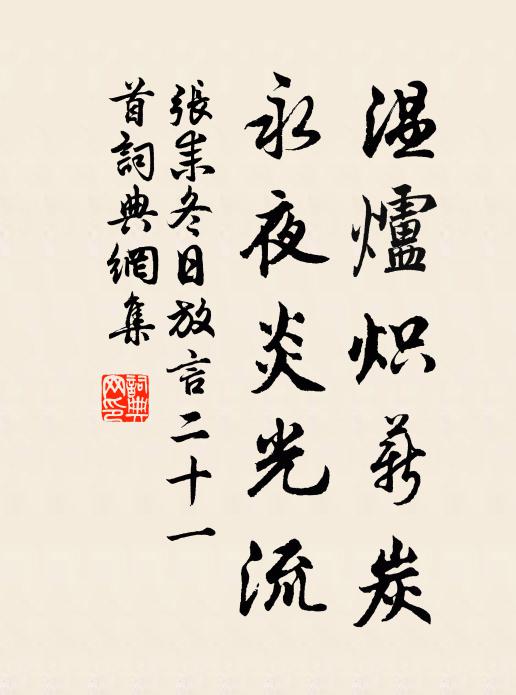 温爐炽薪炭
永夜炎光流
張耒冬日放言二十一
首詞典網集
詞典
网印